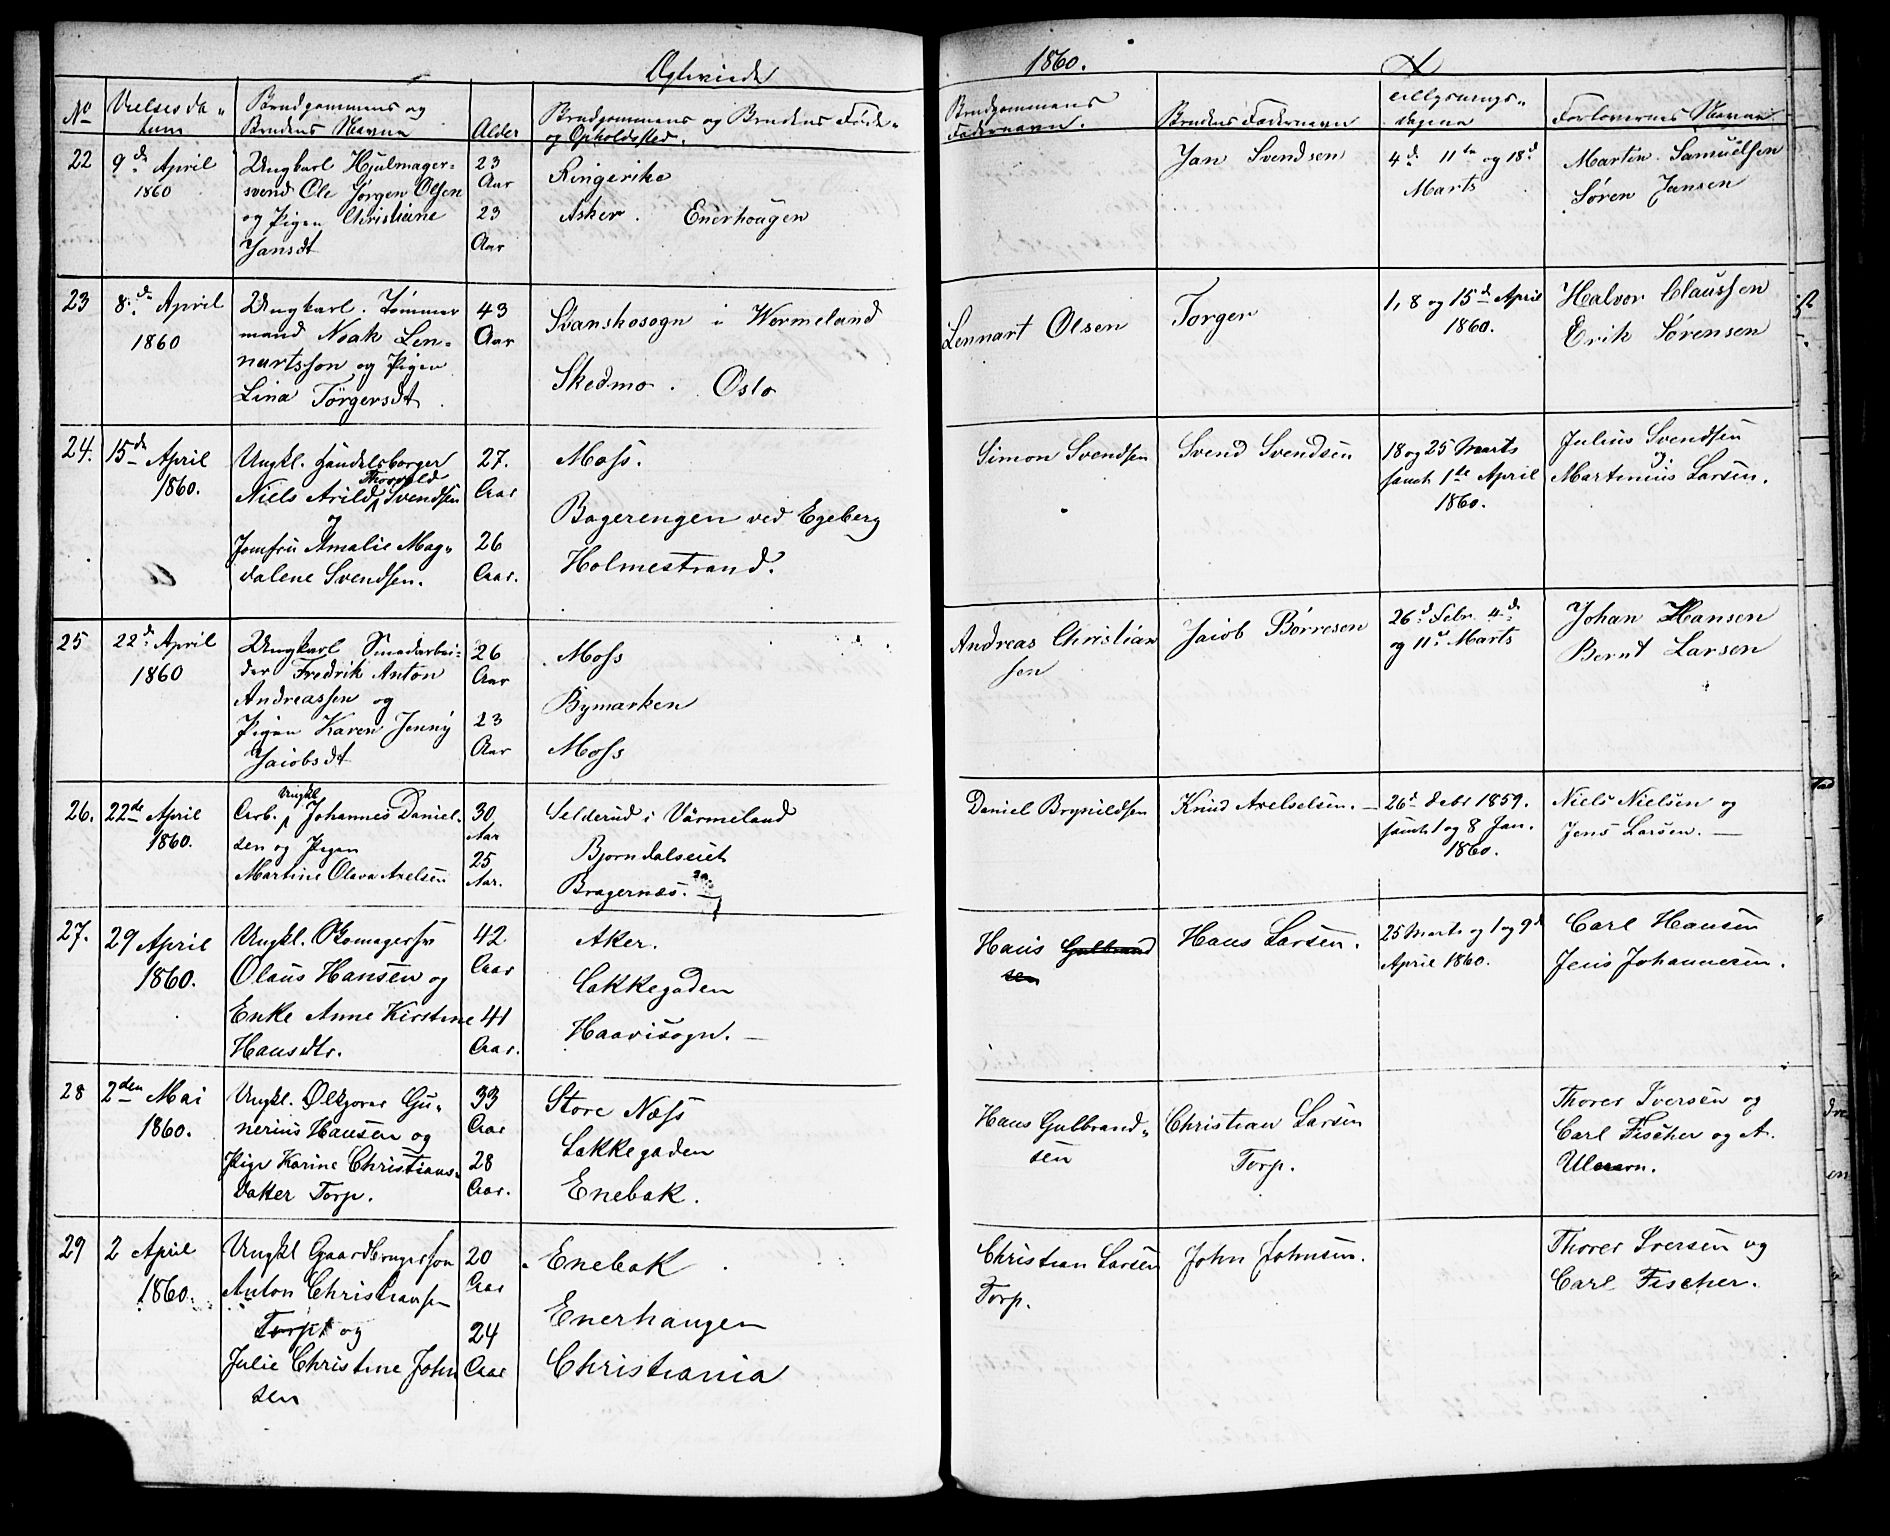 Ægteviede 1860.
No Vielsesda- Brudgommens og Alder Brudgommens og Brudens Føde- Brudgommens Brudens Fadernavn Tillysnings- Forlovernes Navne
tum Brudens Navne og Opholdssted. Fadernavn. dagene
22 9de April Ungkarl Hjulmager- 23 Ringerike Jan Svendsen 4de 11te og 18de Martin Samuelsen
1860 svend Ole Jørgen Olsen Aar Marts Søren Jansen
og Pigen Christiane 23 Asker. Enerhougen
Jansdt Aar
23 8de April Ungkarl. Tømmer 43 Svanskosogn i Wermeland Lennart Olsen Torger 1, 8 og 15de April Halvor Claussen
1860 mand Noak Len- Aar 1860. Erik Sørensen
nartsson og Pigen
Lina Torgersdt Skedmo. Oslo
24. 15de April Ungkl. Handelsborger 27. Moss. Simon Svendsen Svend Svendsen 18 og 25 Marts Julius Svendsen
1860. Niels Arild Thorvald Svendsen Aar samt 1ste April og Martinius Larsen.
og Bagerengen ved Egeberg 1860.
Jomfru Amalie Mag- 26 Holmestrand.
dalene Svendsen. Aar.
25 22de April Ungkarl Smedarbei- 26 Moss Andreas Christian Jacob Børresen 26de Febr. 4de Johan Hansen
1860 der Fredrik Anton Aar sen og 11te Marts Bernt Larsen
Andreassen og Bymarken
Pigen Karen Jenny 23 Moss
Jacobsdt Aar
26. 22de April Arb. Ungkl Johannes Daniel- 30 Selderud i Värmeland Daniel Brynildsen Knud Axelselsen. 26de Debr 1859. Niels Nielsen og
1860. sen og Pigen Aar Bjorndalseiet samt 1 og 8 Jan. Jens Larsen.
Martine Olava Axelsen 25 Aar. Bragernæs. 1860.
27. 29 April Ungkl. Skomagersv 42 Aker. Hans Gulbrand Hans Larsen. 25 Marts og 1 og 9de Carl Hansen
1860. Olaus Hansen og Aar Lakkegaden sen April 1860. Jens Johannesen.
Enke Anne Kirstine 41 Haavisogn.
Hansdtr. Aar.
28 2den Mai Ungkl. Ølkjører Gu- 33 Store Næss Hans Gulbrand- Christian Larsen Thorer Iversen og
1860. nerius Hansen og Aar Lakkegaden sen Torp. Carl Fischer og A.
Pige Karine Christians- 28 Enebak.
datter Torp. Aar.
29 2 April Ungkl Gaardbrugersøn 20 Enebak Christian Larsen John Johnsen. Thorer Iversen og
1860. Anton Christiansen Aar Enerhaugen Torp. Carl Fischer.
Torp og 24 Christiania
Julie Christine John Aar
sen